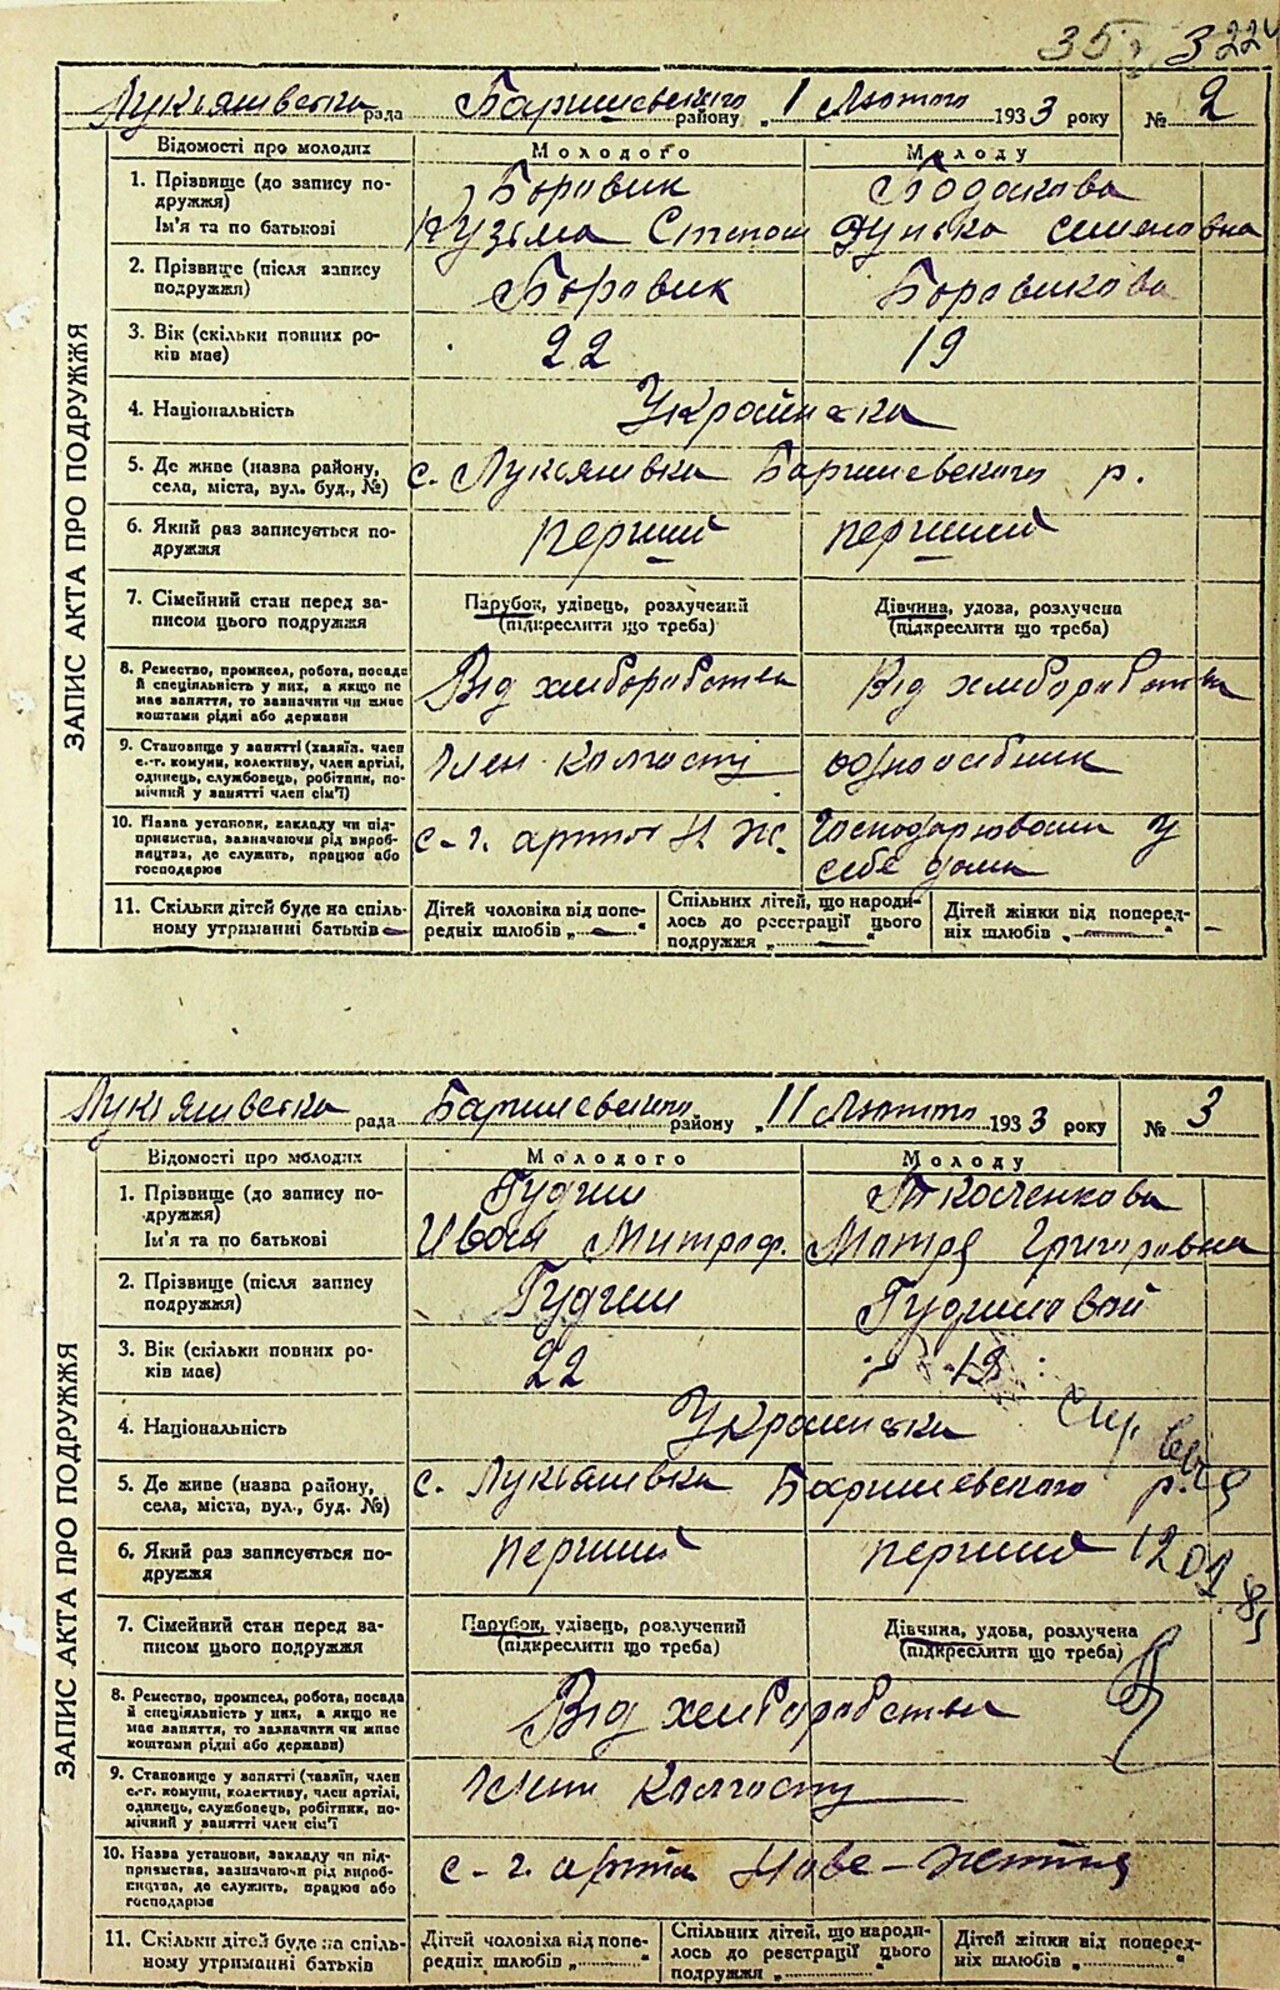 35 322
Лукяшвска рада Баришевского району „ 1 Лютого 1933 року № 2
ЗАПИС АКТА ПРО ПОДРУЖЖЯ
Відомості про молодих Молодого Молоду
1. Прізвище (до запису по- Боровик
дружжя)
Ім'я та по батькові Кузьма Степан Дунька Семеновна
2. Прізвище (після запису Боровик Боровикова
подружжя)
3. Вік (скільки повних ро- 22 19
ків має)
4. Національність Українска
5. Де живе (назва району, с. Лукяшвка Баришевского р.
села, міста, вул. буд., №)
6. Який раз записується по- перший перший
дружжя
7. Сімейний стан перед за- Парубок, удівець, розлучений Дівчина, удова, розлучена
писом цього подружжя (підкреслити що треба) (підкреслити що треба)
8. Ремество, промисел, робота, посада Від хлиборобства Від хлиборобства
й спеціяльність у них, а якщо не
має заняття, то зазначити чи живе
коштами рідні або держави
9. Становище у занятті (хазяїн, член член колгоспу одноосібник
с.-г. комуни, колективу, член артілі,
одинець, службовець, робітник, по-
мічний у занятті член сім'ї)
10. Назва установи, закладу чи під- с-г. артіл Н Ж. Господарювали у
приємства, зазначаючи рід вироб- себе дома
ництва, де служить, працює або
господарює
11. Скільки дітей буде на спіль- Дітей чоловіка від попе- Спільних дітей, що народи- Дітей жінки від поперед-
ному утриманні батьків — редніх шлюбів „—“ лось до реєстрації цього ніх шлюбів „—“ —
подружжя „—“
Лукяшвска рада Баришевского району „ 11 Лютого 1933 року № 3
ЗАПИС АКТА ПРО ПОДРУЖЖЯ
Відомості про молодих Молодого Молоду
1. Прізвище (до запису по- Гудим Ткаченкова
дружжя)
Ім'я та по батькові Иван Митроф. Мотря Григоровна
2. Прізвище (після запису Гудим Гудимовой
подружжя)
3. Вік (скільки повних ро- 22 19
ків має)
4. Національність Українска
5. Де живе (назва району, с. Лукяшвка Баришевского р.
села, міста, вул., буд. №)
6. Який раз записується по- перший перший
дружжя
7. Сімейний стан перед за- Парубок, удівець, розлучений Дівчина, удова, розлучена
писом цього подружжя (підкреслити що треба) (підкреслити що треба)
8. Ремество, промисел, робота, посада Від хлиборобства
й спеціяльність у них, а якщо не
має заняття, то зазначити чи живе
коштами рідні або держави)
9. Становище у занятті (хазяїн, член член колгоспу
с.-г. комуни, колективу, член артілі,
одинець, службовець, робітник, по-
мічний у занятті член сім'ї
10. Назва установи, закладу чи під- с-г. артіл Нове-життя
приємства, зазначаючи рід вироб-
ництва, де служить, працює або
господарює
11. Скільки дітей буде на спіль- Дітей чоловіка від попе- Спільних дітей, що народи- Дітей жінки від поперед-
ному утриманні батьків редніх шлюбів „ “ лось до реєстрації цього ніх шлюбів „ “
подружжя „ “